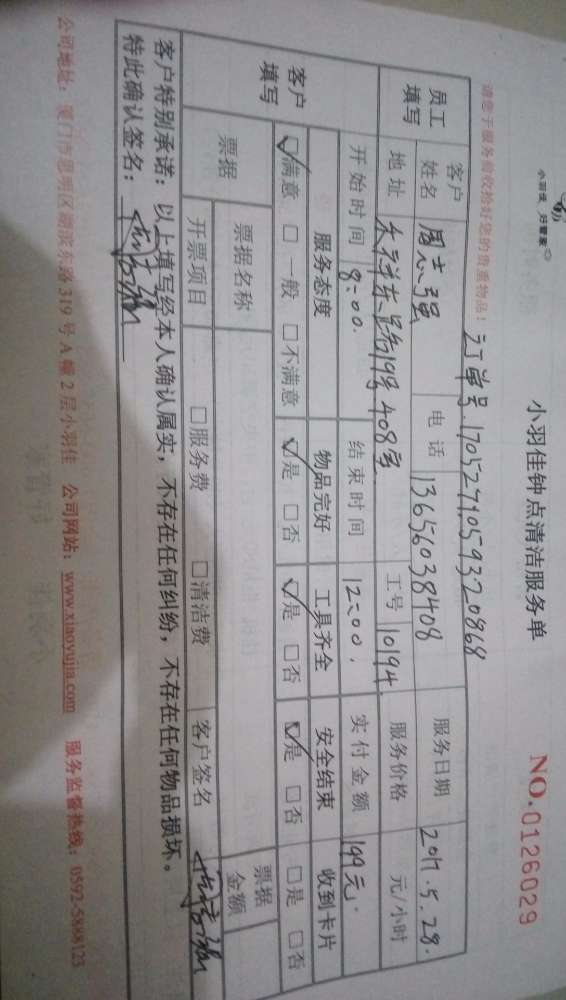 小羽佳 好管家
小羽佳钟点清洁服务单
NO.0126029
请您于服务前收捡好您的贵重物品！
订单号.17052710593320868
员工填写 客户姓名 周志强 电话 13656038408 服务日期 2017.5.28.
地址 东路19号408室 工号 10194 服务价格 元/小时
客户填写 开始时间 8:00. 结束时间 12:00. 实付金额 149元.
服务态度 物品完好 工具齐全 安全结束 收到卡片
☑满意 □一般 □不满意 ☑是 □否 ☑是 □否 ☑是 □否 □是 □否
票据 票据名称 票据金额
开票项目 □服务费 □清洁费 客户签名
客户特别承诺：以上填写经本人确认属实，不存在任何纠纷，不存在任何物品损坏。
特此确认签名：
公司地址：厦门市思明区湖滨东路319号A幢2层小羽佳 公司网站：www.xiaoyujia.com 服务监督热线：0592-5888123